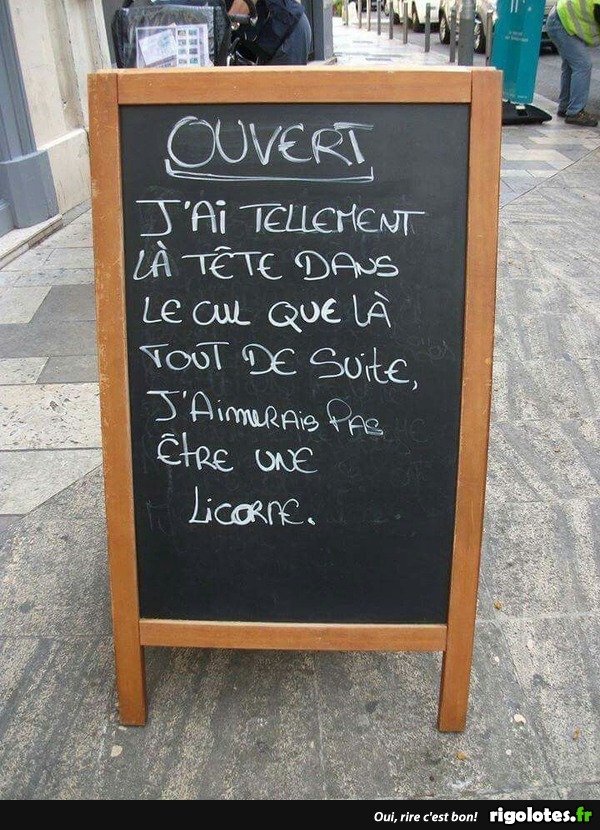 OUVERT
J'Ai TELLEMENT
LÀ TÊTE DANS
LE CUL QUE LÀ
TOUT DE SUITE,
J'AIMERAIS PAS
ÊTRE UNE
LICORNE.
Oui, rire c'est bon! rigolotes.fr